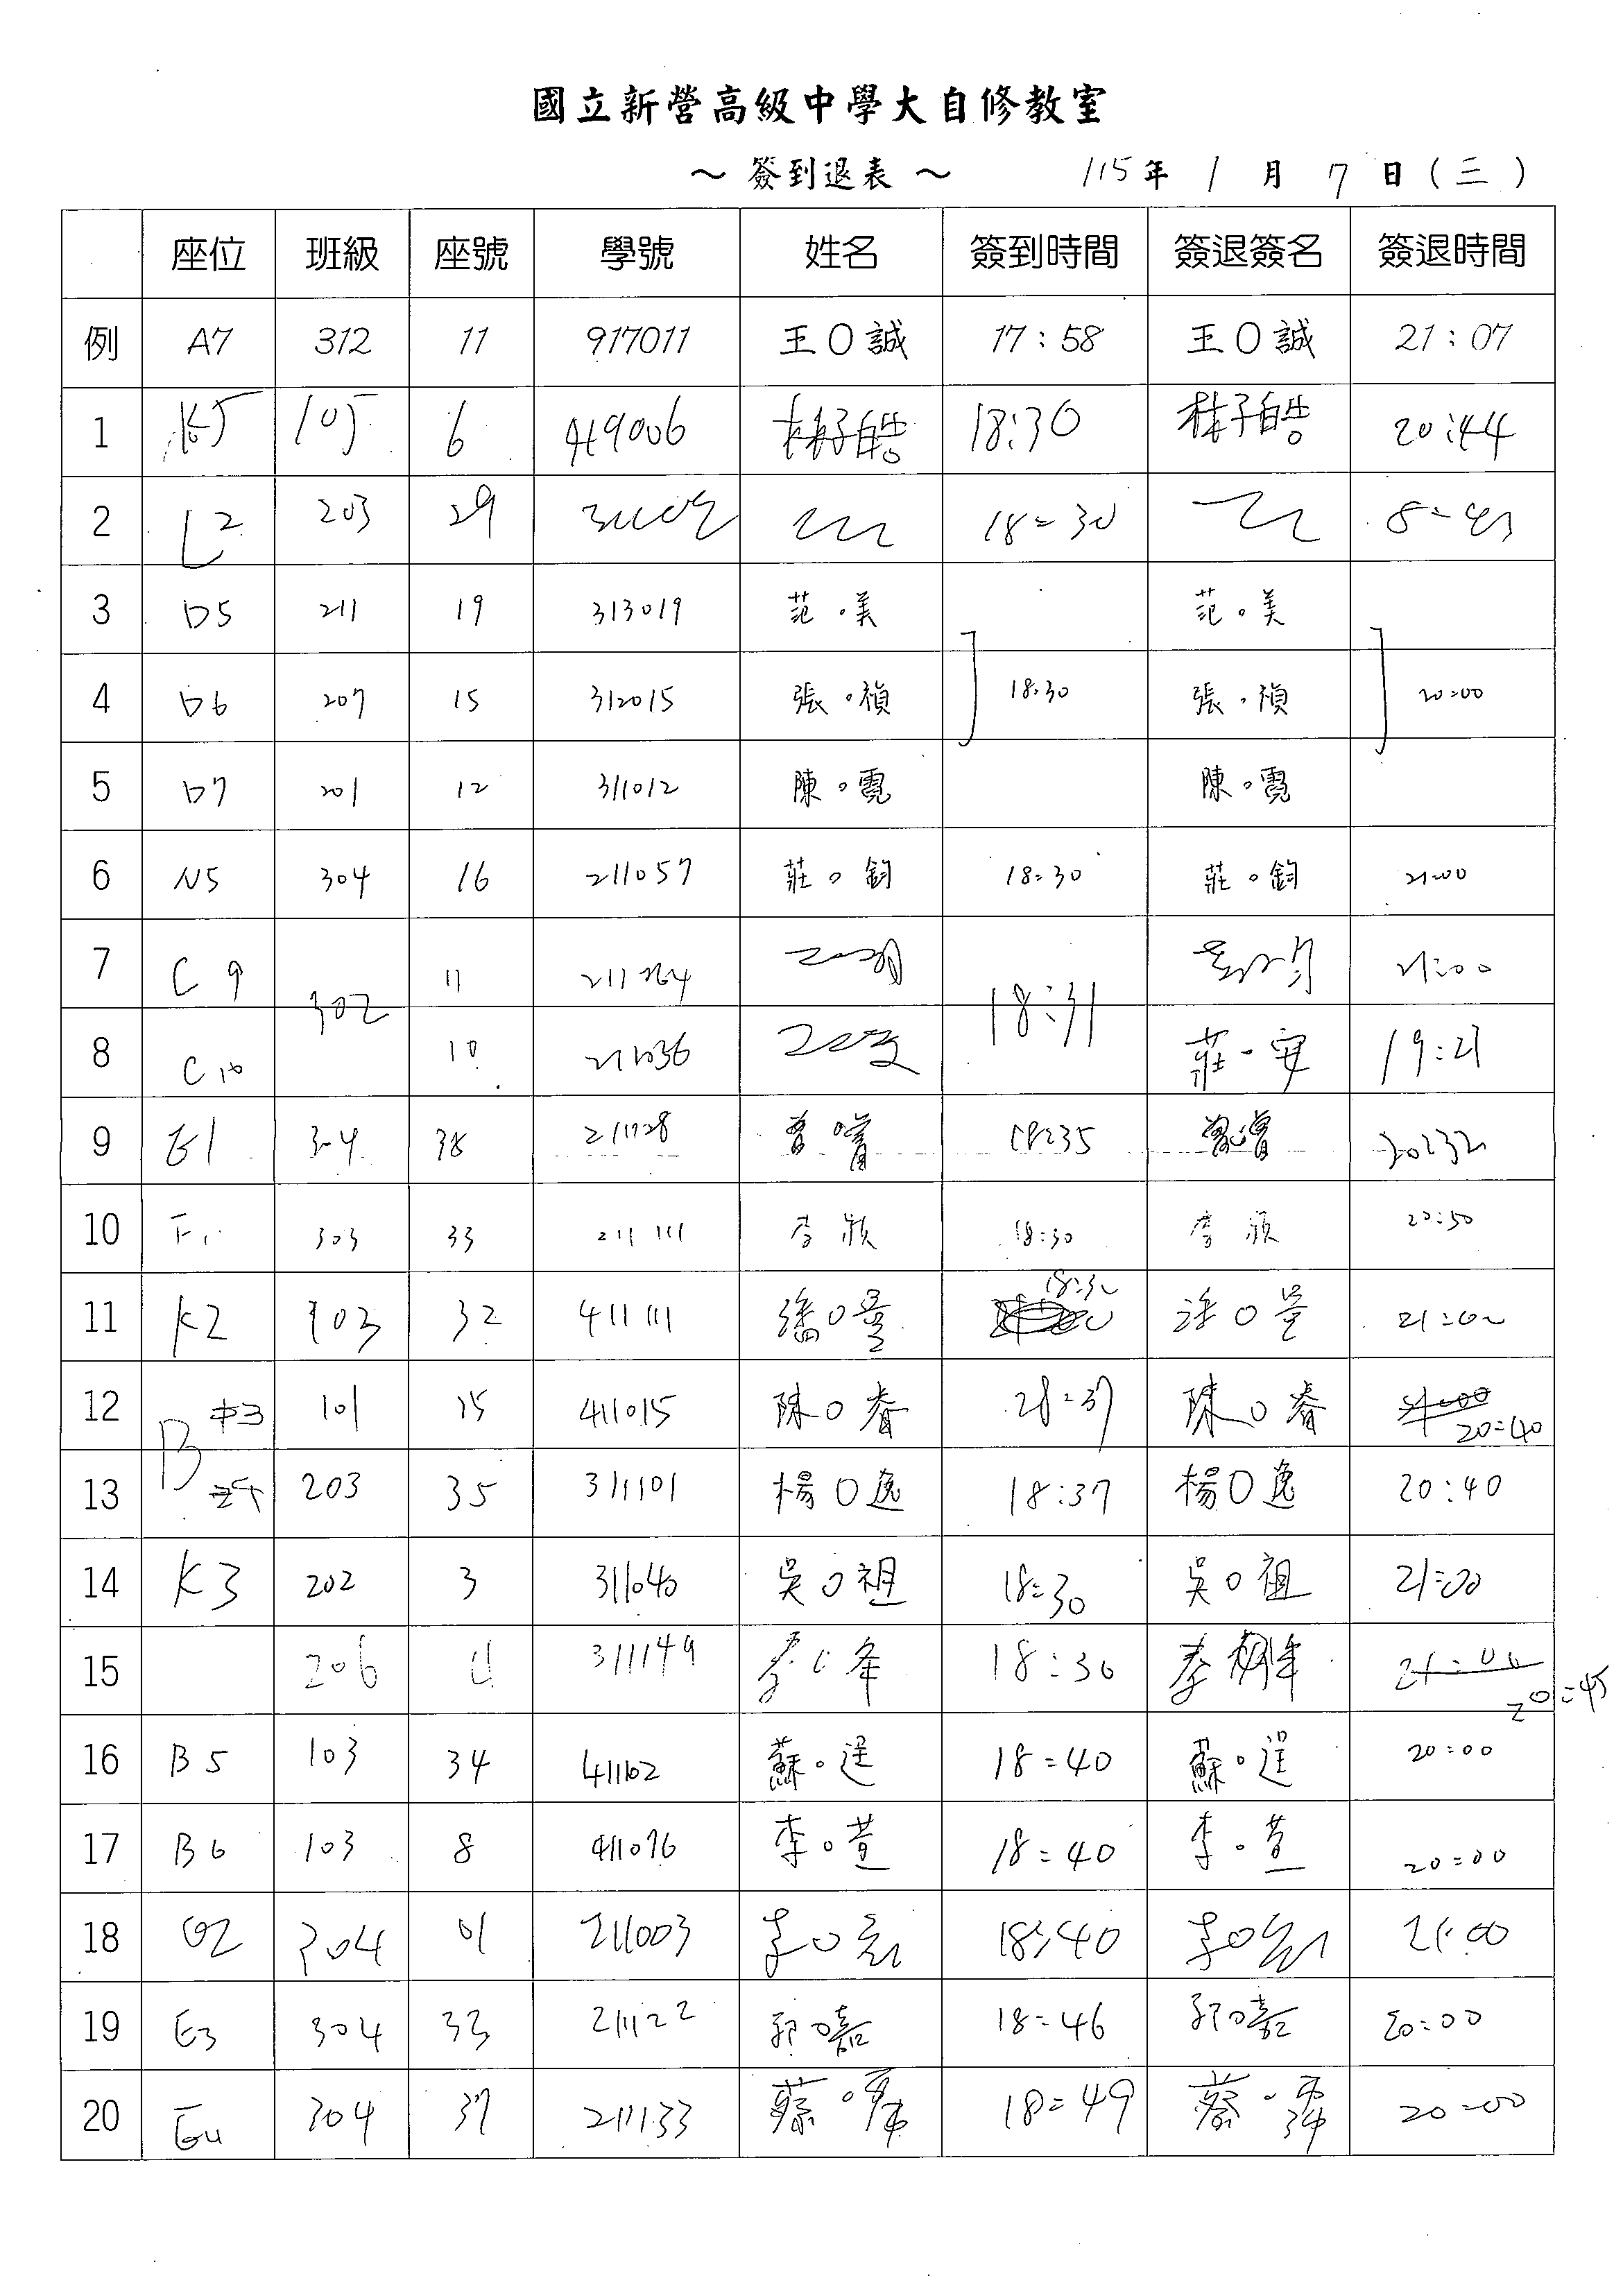 國立新營高級中學大自修教室
～ 簽到退表 ～ 115 年 1 月 7 日 (三)
座位 班級 座號 學號 姓名 簽到時間 簽退簽名 簽退時間
例 A7 312 11 917011 王〇誠 17:58 王〇誠 21:07
1 K5 105 6 419006 林子皓 18:30 林子皓 20:44
2 L2 203 29 18=30
3 D5 211 19 313019 范。美 范。美
4 D6 207 15 312015 張。禎 18:30 張。禎 20:00
5 D7 201 12 311012 陳。霓 陳。霓
6 N5 304 16 211057 莊。鈞 18:30 莊。鈞 21:00
7 C9 302 11 18:31 21:00
8 C10 10 莊。安 19:21
9 E1 38 18:35 20:32
10 F1 303 33 211111 李 穎 18:30 李 穎 20:50
11 K2 103 32 411111 18:30 21:00
12 B 101 15 411015 陳〇睿 陳〇睿 21:00 20:40
13 203 35 311101 楊〇逸 18:37 楊〇逸 20:40
14 K3 202 3 311040 吳〇祖 18:30 吳〇祖 21:00
15 206 311149 18:30 21:00 20:45
16 B5 103 34 蘇。逞 18=40 蘇。逞 20=00
17 B6 103 8 411076 李。萱 18=40 李。萱 20=00
18 G2 304 01 211003 18:40 21:00
19 E3 304 33 211122 18=46 20=00
20 E4 304 37 211133 18=49 20=00